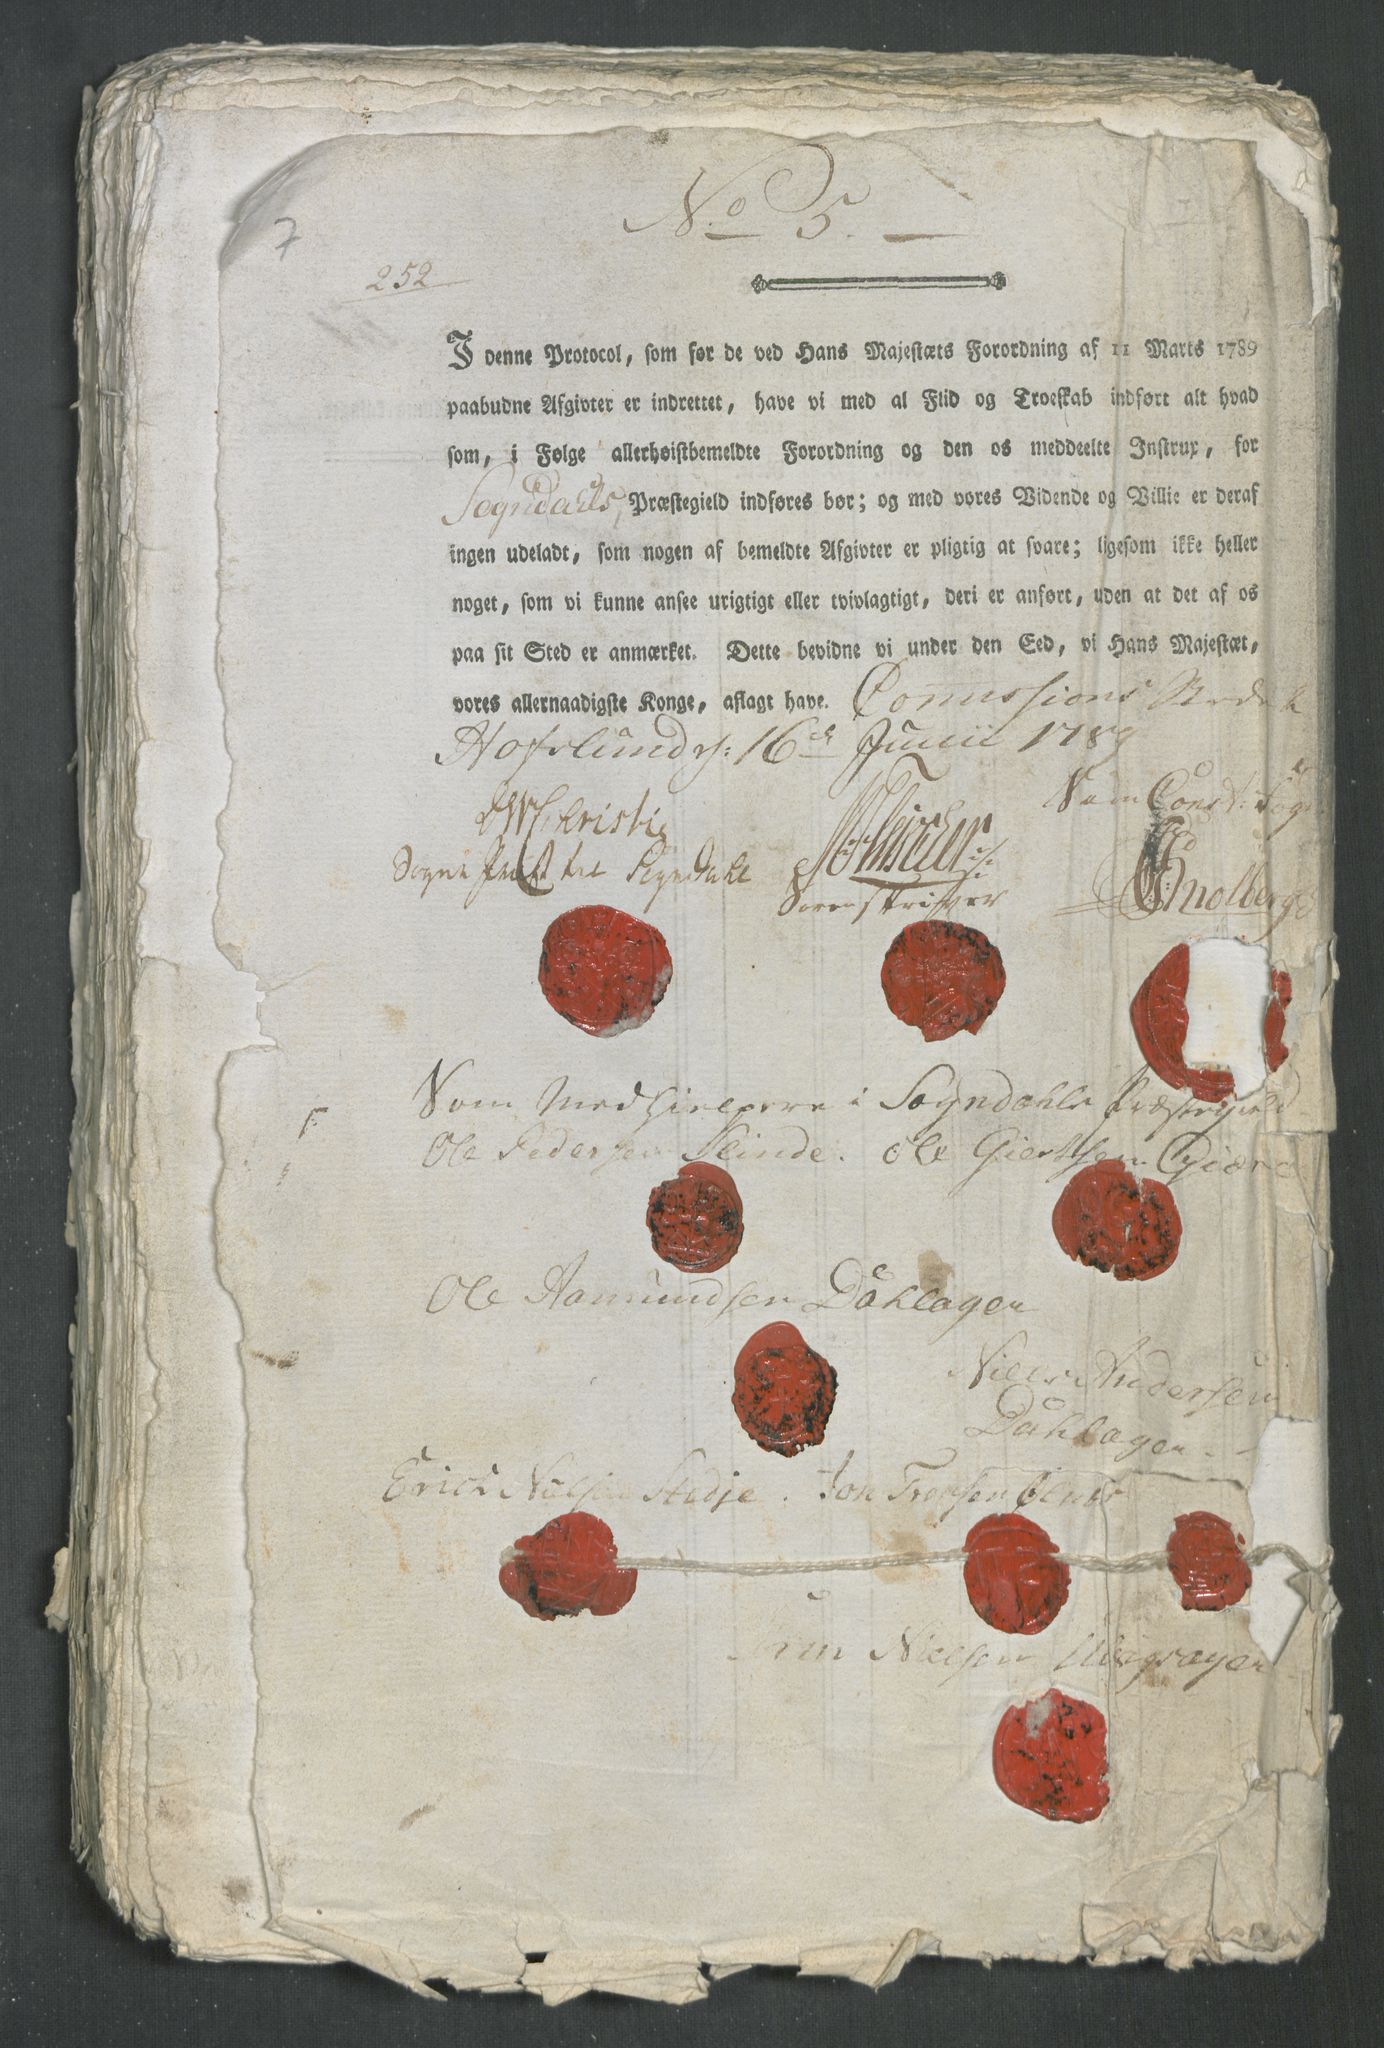 No 5.
7
252
I denne Protocol, som før de ved Hans Majestæts Forordning af 11 Marts 1789
paabudne Afgivter er indrettet, have vi med al Flid og Troeskab indført alt hvad
som, i Følge allerhøistbemeldte Forordning og den os meddeelte Instrux, for
Sogndahls Præstegield indføres bør; og med vores Vidende og Villie er deraf
ingen udeladt, som nogen af bemeldte Afgivter er pligtig at svare; ligesom ikke heller
noget, som vi kunne ansee urigtigt eller tvivlagtigt, deri er anført, uden at det af os
paa sit Sted er anmærket. Dette bevidne vi under den Eed, vi Hans Majestæt,
vores allernaadigste Konge, aflagt have. Comissions
16de Junii 1789
Christie
Sogne Præst til Sogndahl
Sorenskriver
Som Const:
Som Medhielpere i Sogndahls Præstegield
Ole Pedersen Slinde. Ole Giertsen
Ole Aamundsen Dahlager
Niels Andersen
Dahlager
Erich Nielsen Stedje. Jon
Nielsen